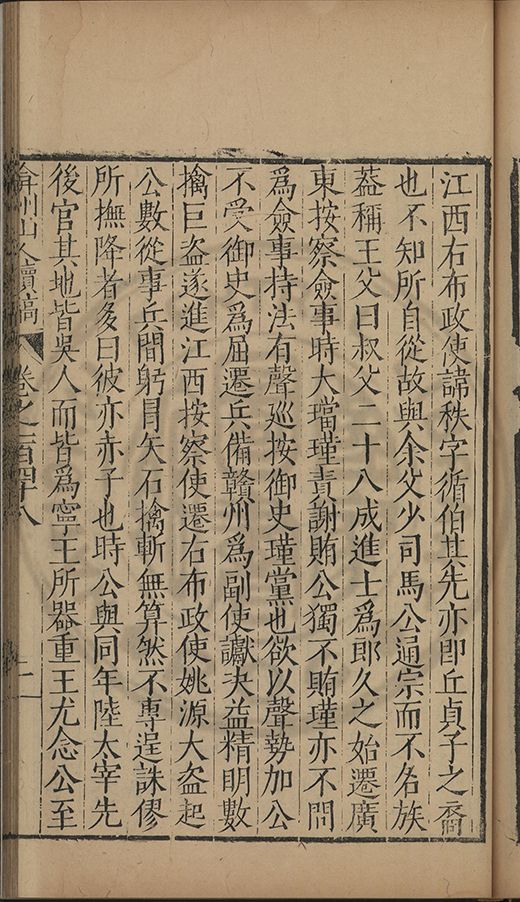 江西右布政使諱秩字循伯其先亦卽丘貞子之裔
也不知所自從故與余父少司馬公通宗而不名族
葢稱王父曰叔父二十八成進士爲郎久之始遷廣
東按察僉事時大璫瑾責謝賄公獨不賄瑾亦不問
爲僉事持法有聲巡按御史瑾黨也欲以聲勢加公
不受御史爲屈遷兵備贛州爲副使讞决益精明數
擒巨盗遂進江西按察使遷右布政使姚源大盗起
公數從事兵間躬冒矢石擒斬無算然不專逞誅僇
所撫降者多曰彼亦赤子也時公與同年陸太宰先
後官其地皆吳人而皆爲寧王所器重王尤念公至
弇州山人續稿 卷之一百四十八 二